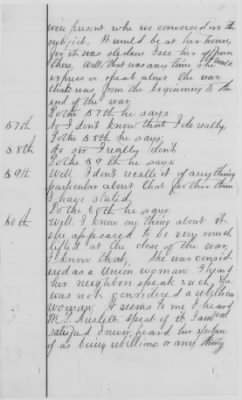 were present when we conversed on the
subject. It would be at her home,
for it was seldom I see her off from
there. Well that was any time she would
express or speak about the war
that was from the beginning to the
end of the war
To the 57th he says
57th No I don't know that I do really.
To the 58th he says
58th No sir I really don't
To the 59th he says
59th Well I don't recollect of anything
particular about that further than
I have stated.
To the 60th he says
60th Well I knew one thing about it
she appeared to be very much
lifted at the close of the war.
I know that, She was consid
ered as a Union woman. I heard
her neighbors speak such. She
was not considered a rebellion
woman. It seems to me I heard
M. J. speak of it I am not
satisfied I never heard her spoken
of as being rebellious or any thing